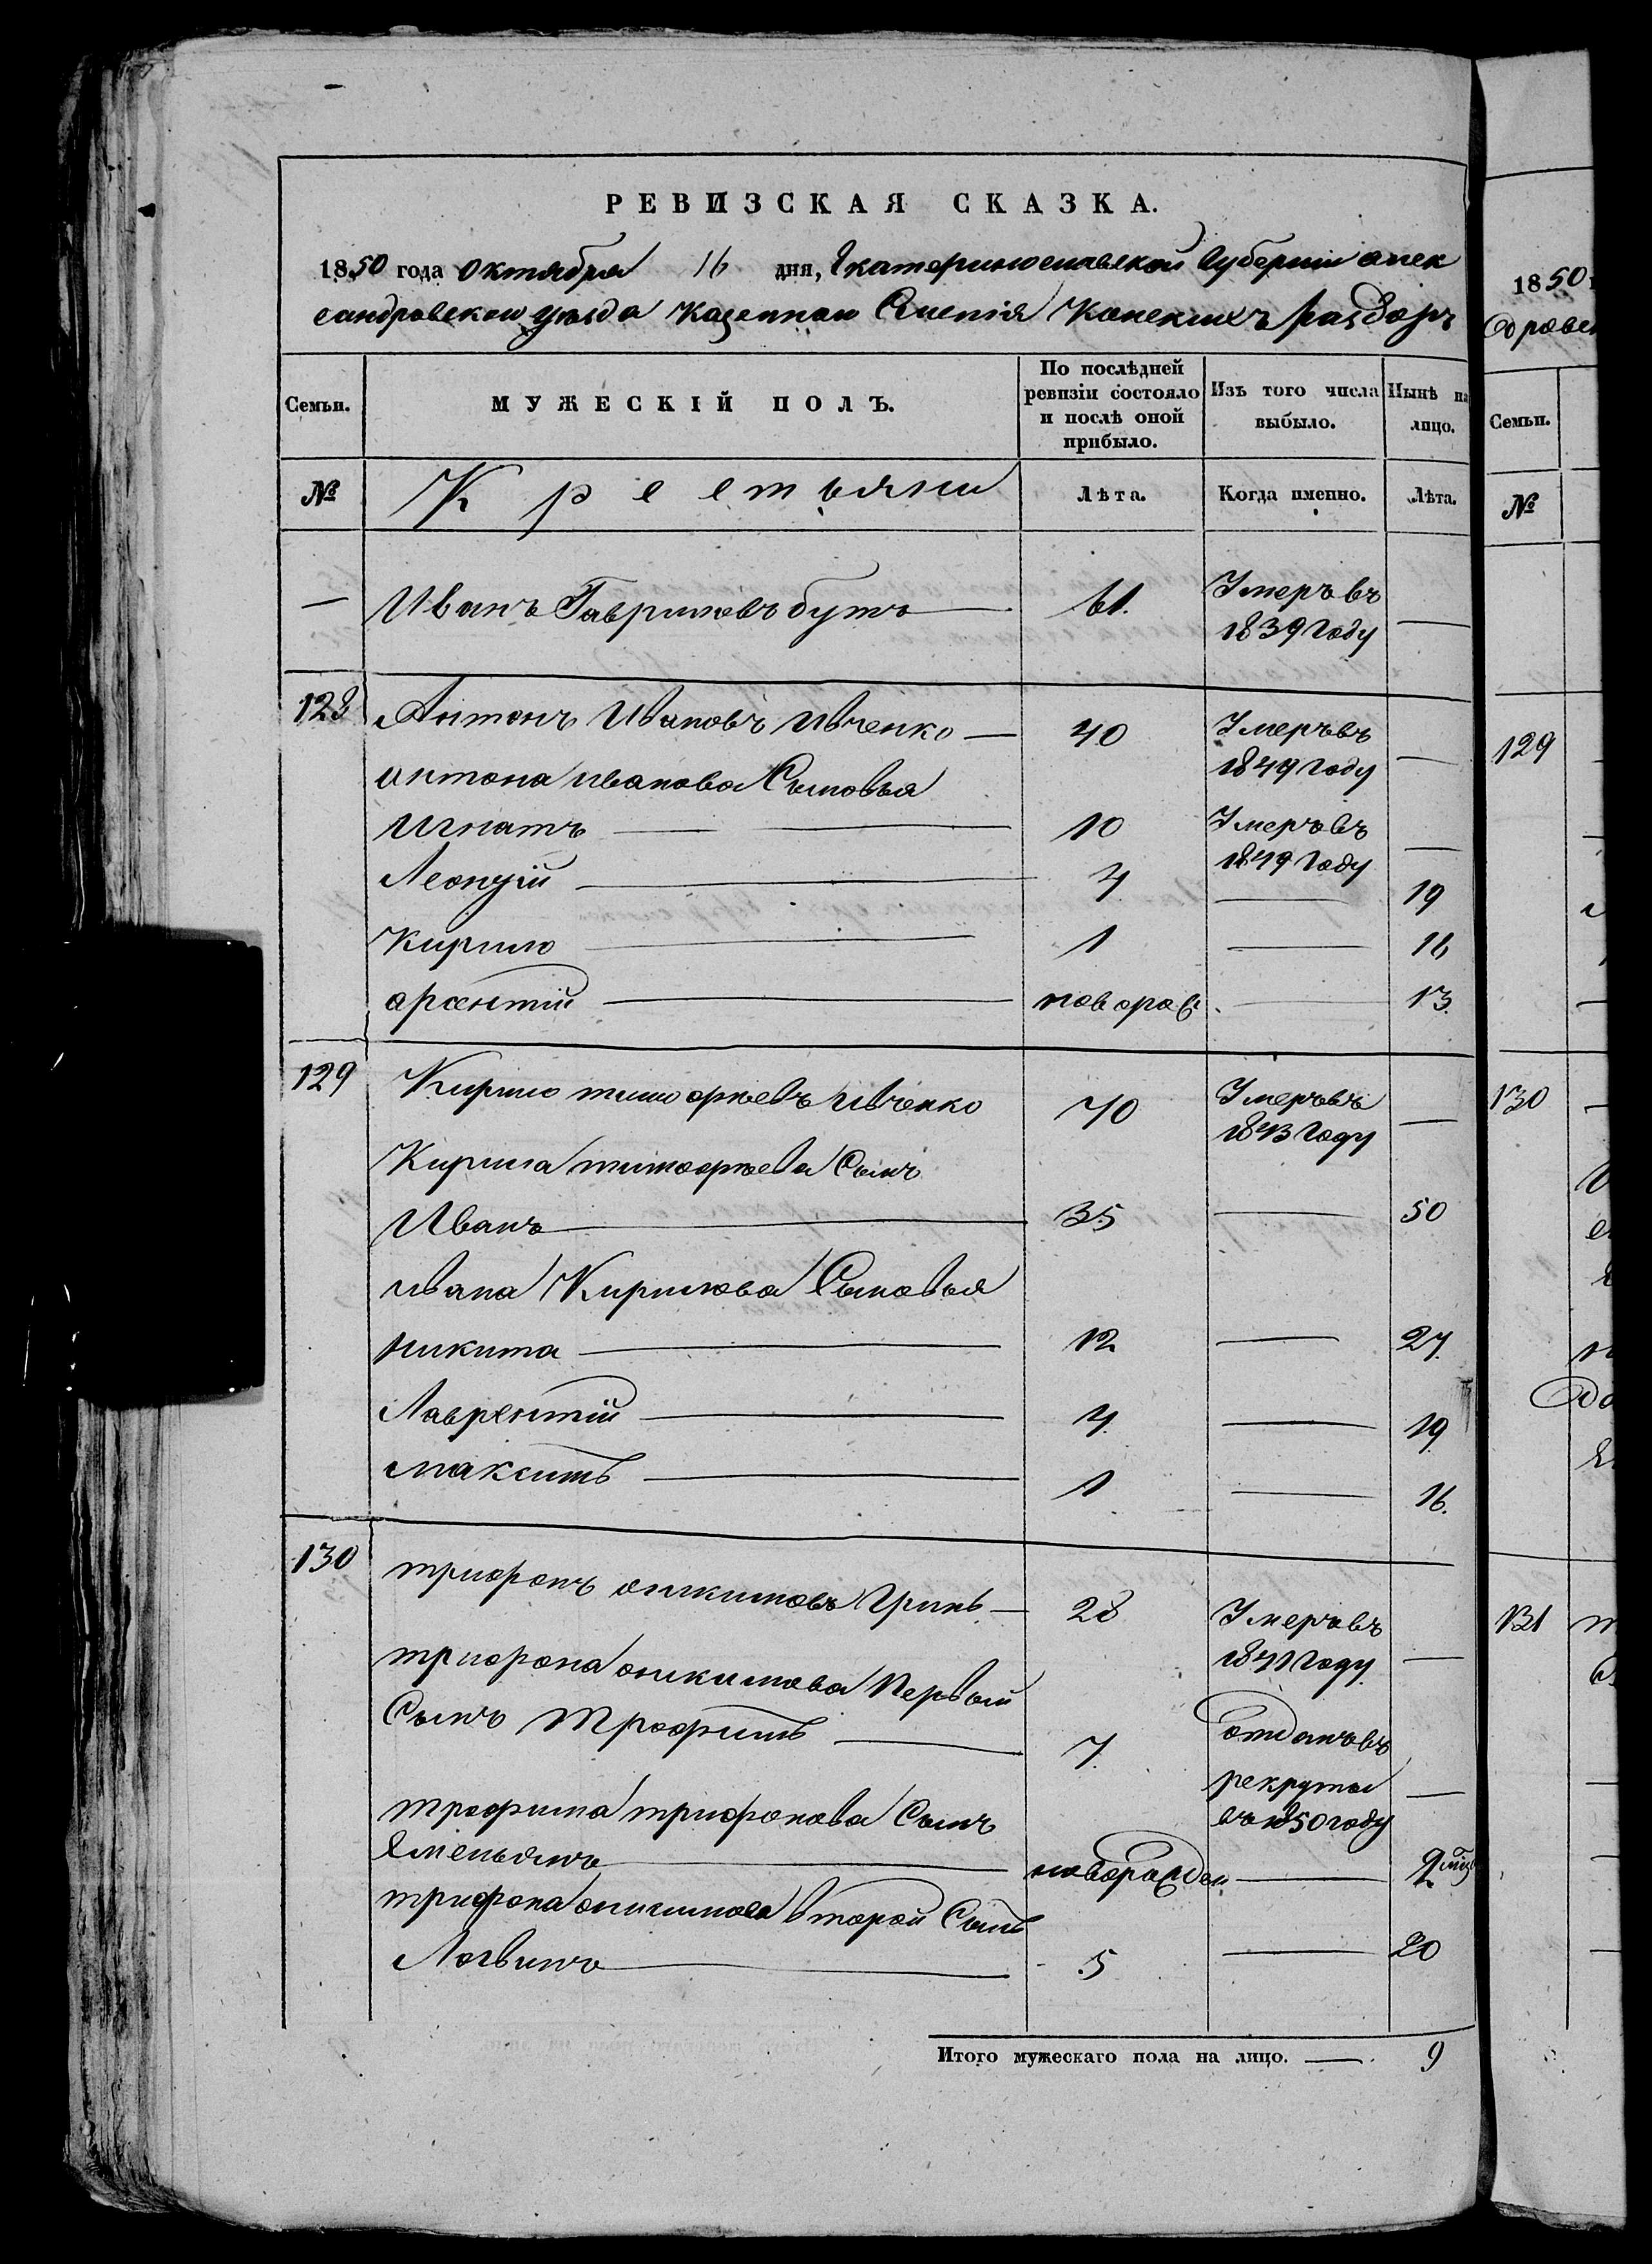 РЕВИЗСКАЯ СКАЗКА.
1850 года октября 16 дня, Екатеринославской Губернии алек
сандровскои уезда Казеннои Селенія Конскихъ раздоръ
Семьи.
МУЖЕСКІЙ ПОЛЪ.
По послѣдней
ревизіи состояло
и послѣ оной
прибыло.
Изъ того числа
выбыло.
Нынѣ на
лицо.
№
Крестьяни
Лѣта.
Когда именно.
Лѣта.
— Иванъ Гавриловъ бутъ — 61. Умеръ въ
1839 Году —
128 Антонъ Ивановъ Ивченко — 40 Умеръ въ
1849 Году —
антона иванова Сыновья
Игнатъ — — 10 Умеръ въ
1849 Году —
Леонтій — 4 — 19
Кирило — 1 — 16
арсентій — новорож. — 13.
129 Кирило тимофѣевъ Ивченко 70 Умеръ въ
1843 Году —
Кирила тимофѣева Сынъ
Иванъ — 35 — 50
ивана Кирилова Сыновья
никита — 12 — 27.
Лаврентій — 4. — 19.
максимъ — 1 — 16.
130 трифонъ аникимовъ Гринь — 28 Умеръ въ
1841 Году. —
трифона аникимова Первый
Сынъ Трофимъ — 7. отданъ въ
рекруты
въ 1850 году —
трофима трифонова Сынъ
Емельянъ — новорожден. — 2 мѣс
трифона аникимова второй Сынъ
Логвинъ — 5 — 20
Итого мужескаго пола на лицо. — 9
1850
Семьи.
№
129
130
131